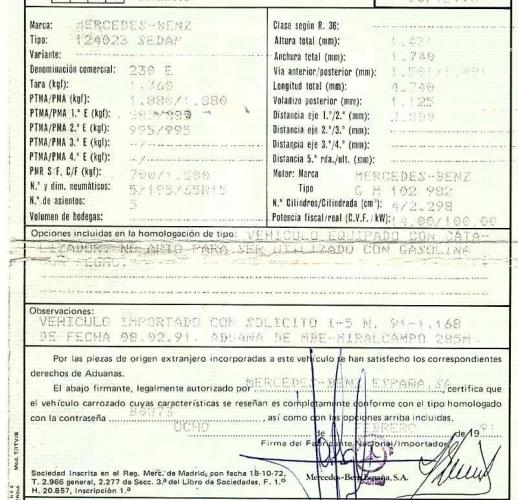 Marca: MERCEDES-BENZ
Tipo: 124023 SEDAN
Variante:
Denominación comercial: 230 E
Tara (kgf): 1.360
PTMA/PMA (kgf): 1.880/1.880
PTMA/PMA 1.º E (kgf):
PTMA/PMA 2.º E (kgf): 995/995
PTMA/PMA 3.º E (kgf): -/
PTMA/PMA 4.º E (kgf): -/
PMR S/F, C/F (kgf): 700/1.500
N.º y dim. neumáticos: 5/195/65R15
N.º de asientos: 5
Volumen de bodegas:
Clase según R. 36:
Altura total (mm):
Anchura total (mm): 1.740
Vía anterior/posterior (mm): 1.501/1.491
Longitud total (mm): 4.740
Voladizo posterior (mm): 1.125
Distancia eje 1.º/2.º (mm): 2.800
Distancia eje 2.º/3.º (mm):
Distancia eje 3.º/4.º (mm):
Distancia 5.ª rda./últ. (mm):
Motor: Marca MERCEDES-BENZ
Tipo G M 102 982
N.º Cilindros/Cilindrada (cm³): 4/2.298
Potencia fiscal/real (C.V.F. / kW): 14.00/100 00
Opciones incluidas en la homologación de tipo: VEHICULO EQUIPADO CON CATA-
LIZADOR. NO APTO PARA SER UTILIZADO CON GASOLINA
Observaciones:
VEHICULO IMPORTADO CON SOLICITO I-5 N. 91-1.168
DE FECHA 08.02.91. ADUANA DE MBE-MIRALCAMPO 285M.
Por las piezas de origen extranjero incorporadas a este vehículo se han satisfecho los correspondientes
derechos de Aduanas.
El abajo firmante, legalmente autorizado por MERCEDES-BENZ ESPAÑA,SA certifica que
el vehículo carrozado cuyas características se reseñan es completamente conforme con el tipo homologado
con la contraseña B0073 así como con las opciones arriba incluidas.
OCHO de FEBRERO de 19 91
Firma del Fabricante Nacional/Importador
Mercedes-Benz España, S.A.
Sociedad Inscrita en el Reg. Merc. de Madrid, con fecha 18-10-72,
T. 2.966 general, 2.277 de Secc. 3.ª del Libro de Sociedades, F. 1.º
H. 20.857, Inscripción 1.ª